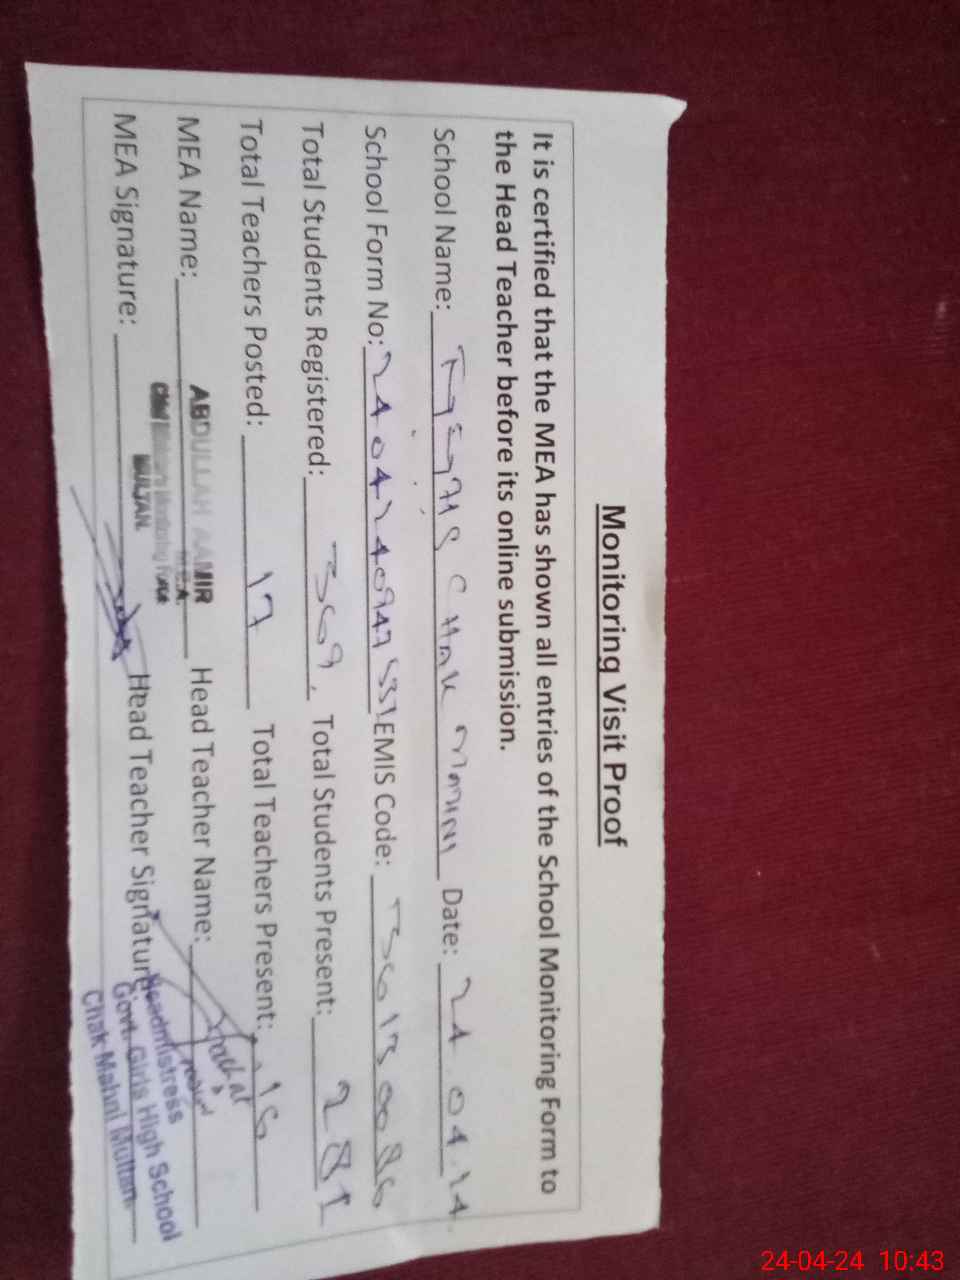 Monitoring Visit Proof
It is certified that the MEA has shown all entries of the School Monitoring Form to
the Head Teacher before its online submission.
School Name: CHAK Date: 24.04.24.
School Form No: EMIS Code:
Total Students Registered: 369. Total Students Present: 281
Total Teachers Posted: 17 Total Teachers Present: 16
MEA Name: ABDULLAH AAMIR Head Teacher Name:
M.E.A.
MULTAN.
MEA Signature: Head Teacher Signature:
Headmistress
Govt. Girls High School
Chak Mahni Multan.
24-04-24 10:43